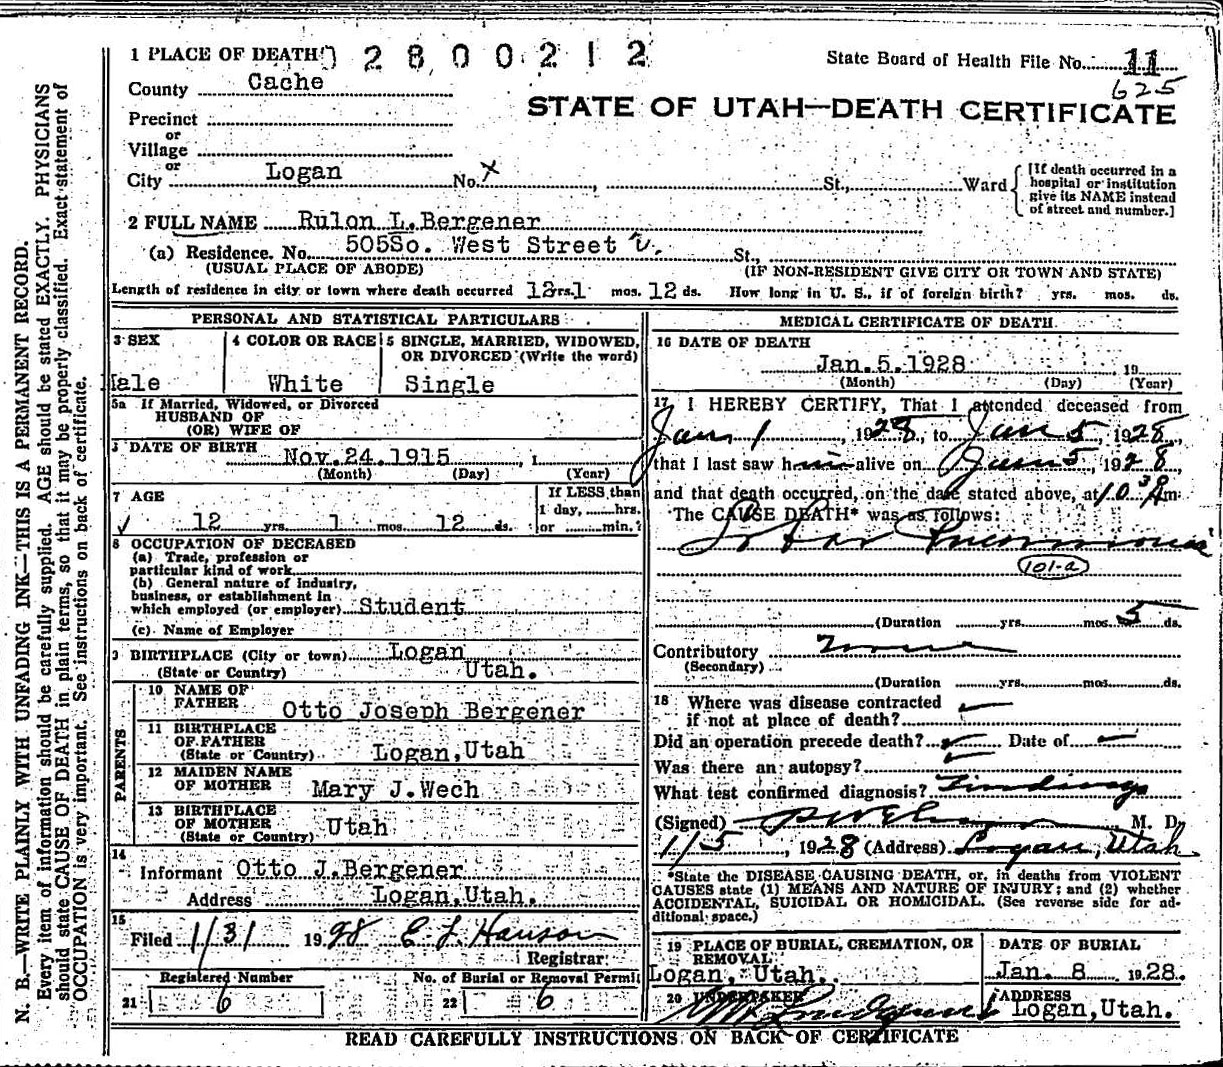 N. B.—WRITE PLAINLY WITH UNFADING INK—THIS IS A PERMANENT RECORD.
Every item of information should be carefully supplied. AGE should be stated EXACTLY. PHYSICIANS
should state CAUSE OF DEATH in plain terms, so that it may be properly classified. Exact statement of
OCCUPATION is very important. See instructions on back of certificate.
1 PLACE OF DEATH 2800212
State Board of Health File No. 11
625
County Cache
STATE OF UTAH—DEATH CERTIFICATE
Precinct
or
Village
or
City Logan No. X , St., Ward
[If death occurred in a
hospital or institution
give its NAME instead
of street and number.]
2 FULL NAME Rulon L. Bergener
(a) Residence. No. 505So. West Street St.,
(USUAL PLACE OF ABODE) (IF NON-RESIDENT GIVE CITY OR TOWN AND STATE)
Length of residence in city or town where death occurred 12yrs. 1 mos. 12 ds. How long in U. S., if of foreign birth? yrs. mos. ds.
PERSONAL AND STATISTICAL PARTICULARS
3 SEX
4 COLOR OR RACE
5 SINGLE, MARRIED, WIDOWED,
OR DIVORCED (Write the word)
Male White Single
5a If Married, Widowed, or Divorced
HUSBAND OF
(OR) WIFE OF
DATE OF BIRTH
Nov.24.1915
(Month) (Day) (Year)
7 AGE
If LESS than
1 day, hrs.
or min.?
12 yrs. 1 mos. 12 ds.
8 OCCUPATION OF DECEASED
(a) Trade, profession or
particular kind of work
(b) General nature of industry,
business, or establishment in
which employed (or employer) Student
(c) Name of Employer
BIRTHPLACE (City or town) Logan
(State or Country) Utah.
PARENTS
10 NAME OF
FATHER Otto Joseph Bergener
11 BIRTHPLACE
OF FATHER
(State or Country) Logan,Utah
12 MAIDEN NAME
OF MOTHER Mary J.Wech
13 BIRTHPLACE
OF MOTHER
(State or Country) Utah
14
Informant Otto J.Bergener
Address Logan,Utah.
15
Filed 1/31 1928 E. L. Hanson
Registrar
Registered Number No. of Burial or Removal Permit
21 6 22 6
MEDICAL CERTIFICATE OF DEATH
16 DATE OF DEATH
Jan.5.1928 19
(Month) (Day) (Year)
17 I HEREBY CERTIFY, That I attended deceased from
Jan 1, 1928, to Jan 5, 1928,
that I last saw him alive on Jan 5, 1928,
and that death occurred, on the date stated above, at 10 30 A m.
The CAUSE DEATH* was as follows:
Lobar Pneumonia
101-a
(Duration yrs. mos. 5 ds.
Contributory None
(Secondary)
(Duration yrs. mos. ds.
18 Where was disease contracted
if not at place of death?
Did an operation precede death? Date of
Was there an autopsy?
What test confirmed diagnosis? Findings
(Signed) M. D.
1/5, 1928 (Address) Logan, Utah
*State the DISEASE CAUSING DEATH, or, in deaths from VIOLENT
CAUSES state (1) MEANS AND NATURE OF INJURY; and (2) whether
ACCIDENTAL, SUICIDAL OR HOMICIDAL. (See reverse side for ad-
ditional space.)
19 PLACE OF BURIAL, CREMATION, OR
REMOVAL
Logan, Utah.
DATE OF BURIAL
Jan. 8 1928.
20 UNDERTAKER
ADDRESS
Logan,Utah.
READ CAREFULLY INSTRUCTIONS ON BACK OF CERTIFICATE